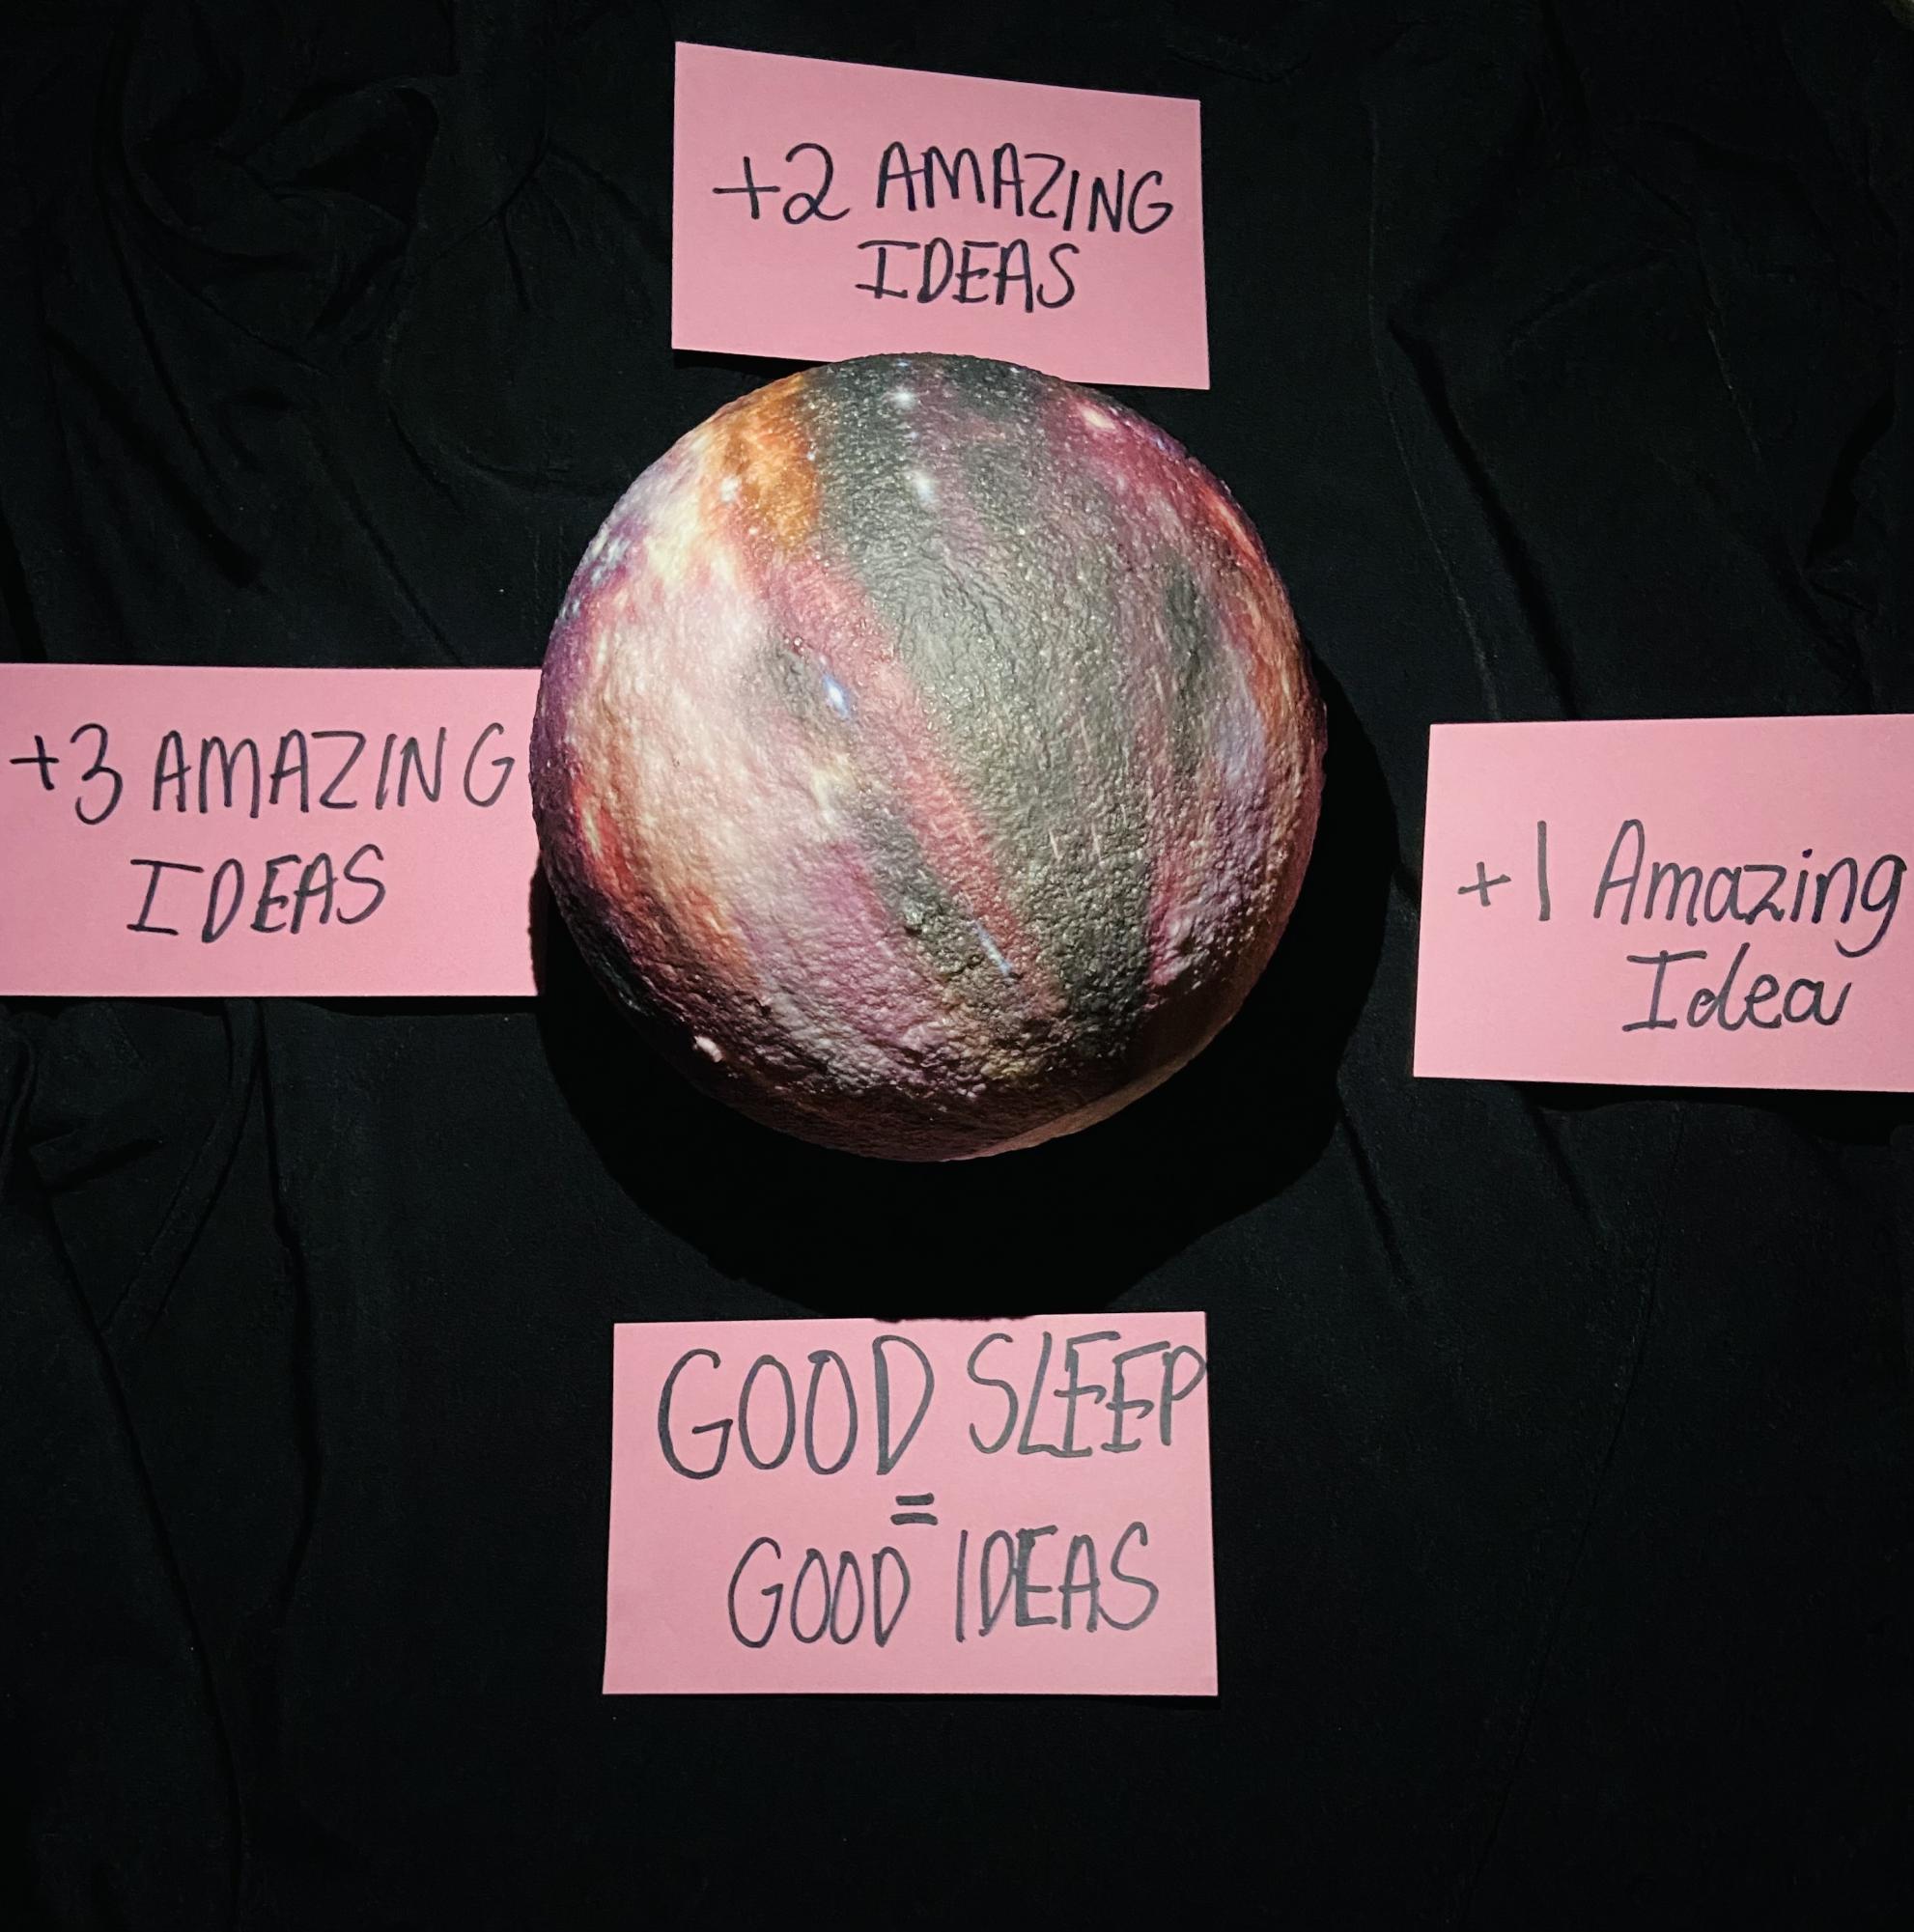 +2 AMAZING
IDEAS
+3 AMAZING
IDEAS
+1 Amazing
Idea
GOOD SLEEP
=
GOOD IDEAS